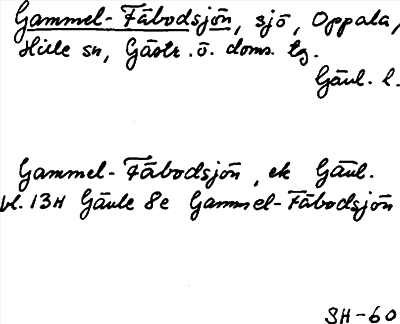 Gammel-Fäbodsjön, sjö, Oppala,
Hille sn, Gästr. ö. doms. tg.
Gävl. l.
Gammel-Fäbodsjön, ek Gävl.
bl. 13H Gävle 8e Gammel-Fäbodsjön
SH-60